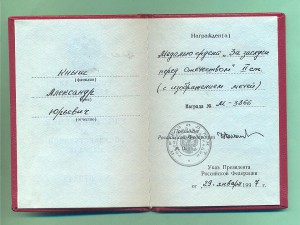 Кныш
(фамилия)
Александр
(имя)
Юрьевич
(отчество)
Награжден(а)
Медалью ордена „За заслуги
перед Отечеством" II ст.
(с изображением мечей)
Награда №
Президент
Российской Федерации
Указ Президента
Российской Федерации
от 29 января 1997 г.